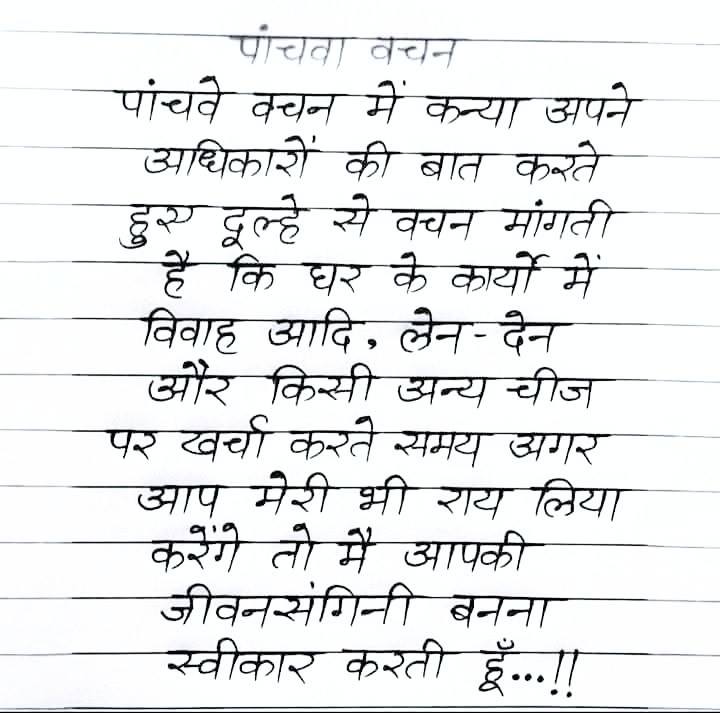 पांचवा वचन
पांचवे वचन में कन्या अपने
अधिकारों की बात करते
हुए दूल्हे से वचन मांगती
है कि घर के कार्यों में
विवाह आदि, लेन-देन
और किसी अन्य चीज
पर खर्चा करते समय अगर
आप मेरी भी राय लिया
करेंगे तो मैं आपकी
जीवनसंगिनी बनना
स्वीकार करती हूँ...!!